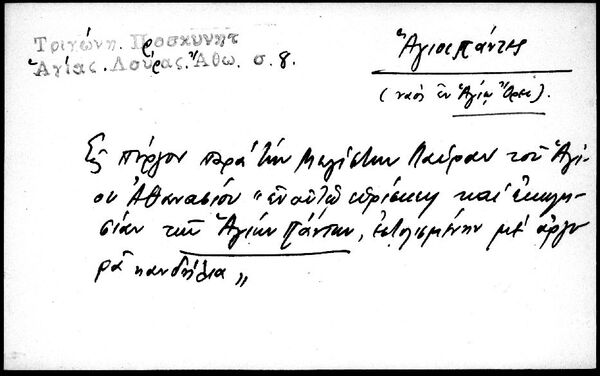 Τριγώνη. Προσκυνητ
Ἁγίας. Λαύρας. Ἄθω. σ. 8.
Ἅγιοι πάντες
(ναὸς ἐν Ἁγίῳ Ὄρει).
Εἰς πύργον παρὰ τὴν Μεγίστην Λαύραν τοῦ Ἁγί-
ου Ἀθανασίου "ἐν αὐτῷ εὑρίσκεις καὶ ἐκκλη-
σίαν τῶν Ἁγίων Πάντων, ἐστολισμένην μὲ ἀργυ
ρᾶ κανδήλια"